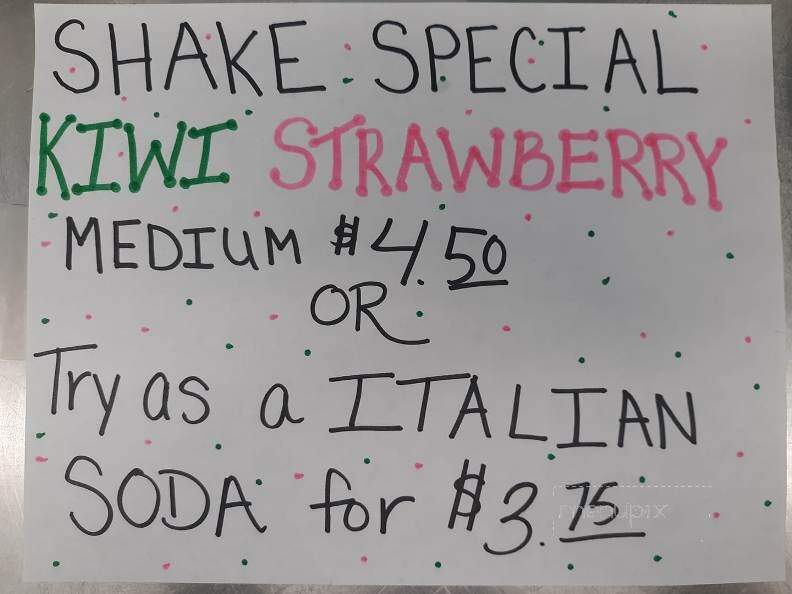 SHAKE SPECIAL
KIWI STRAWBERRY
MEDIUM $4.50
OR
Try as a ITALIAN
SODA for $3.75
menupix